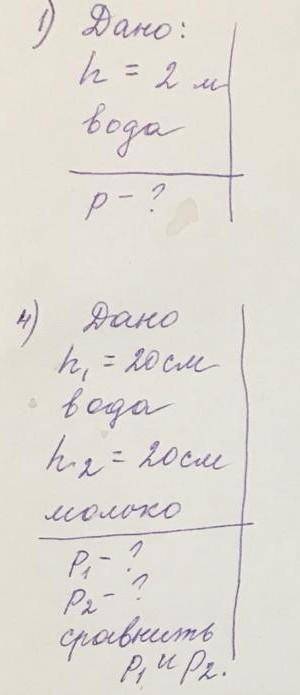 1) Дано:
h = 2 м
вода
p - ?
4) Дано
h₁ = 20 см
вода
h₂ = 20 см
молоко
p₁ - ?
p₂ - ?
сравнить
p₁ и p₂.